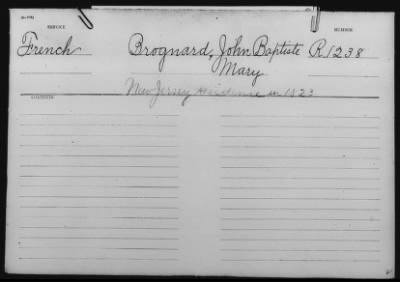 SERVICE NUMBER
French Brognard, John Baptiste R1238
Mary
New Jersey residence in 1823
CONTENTS